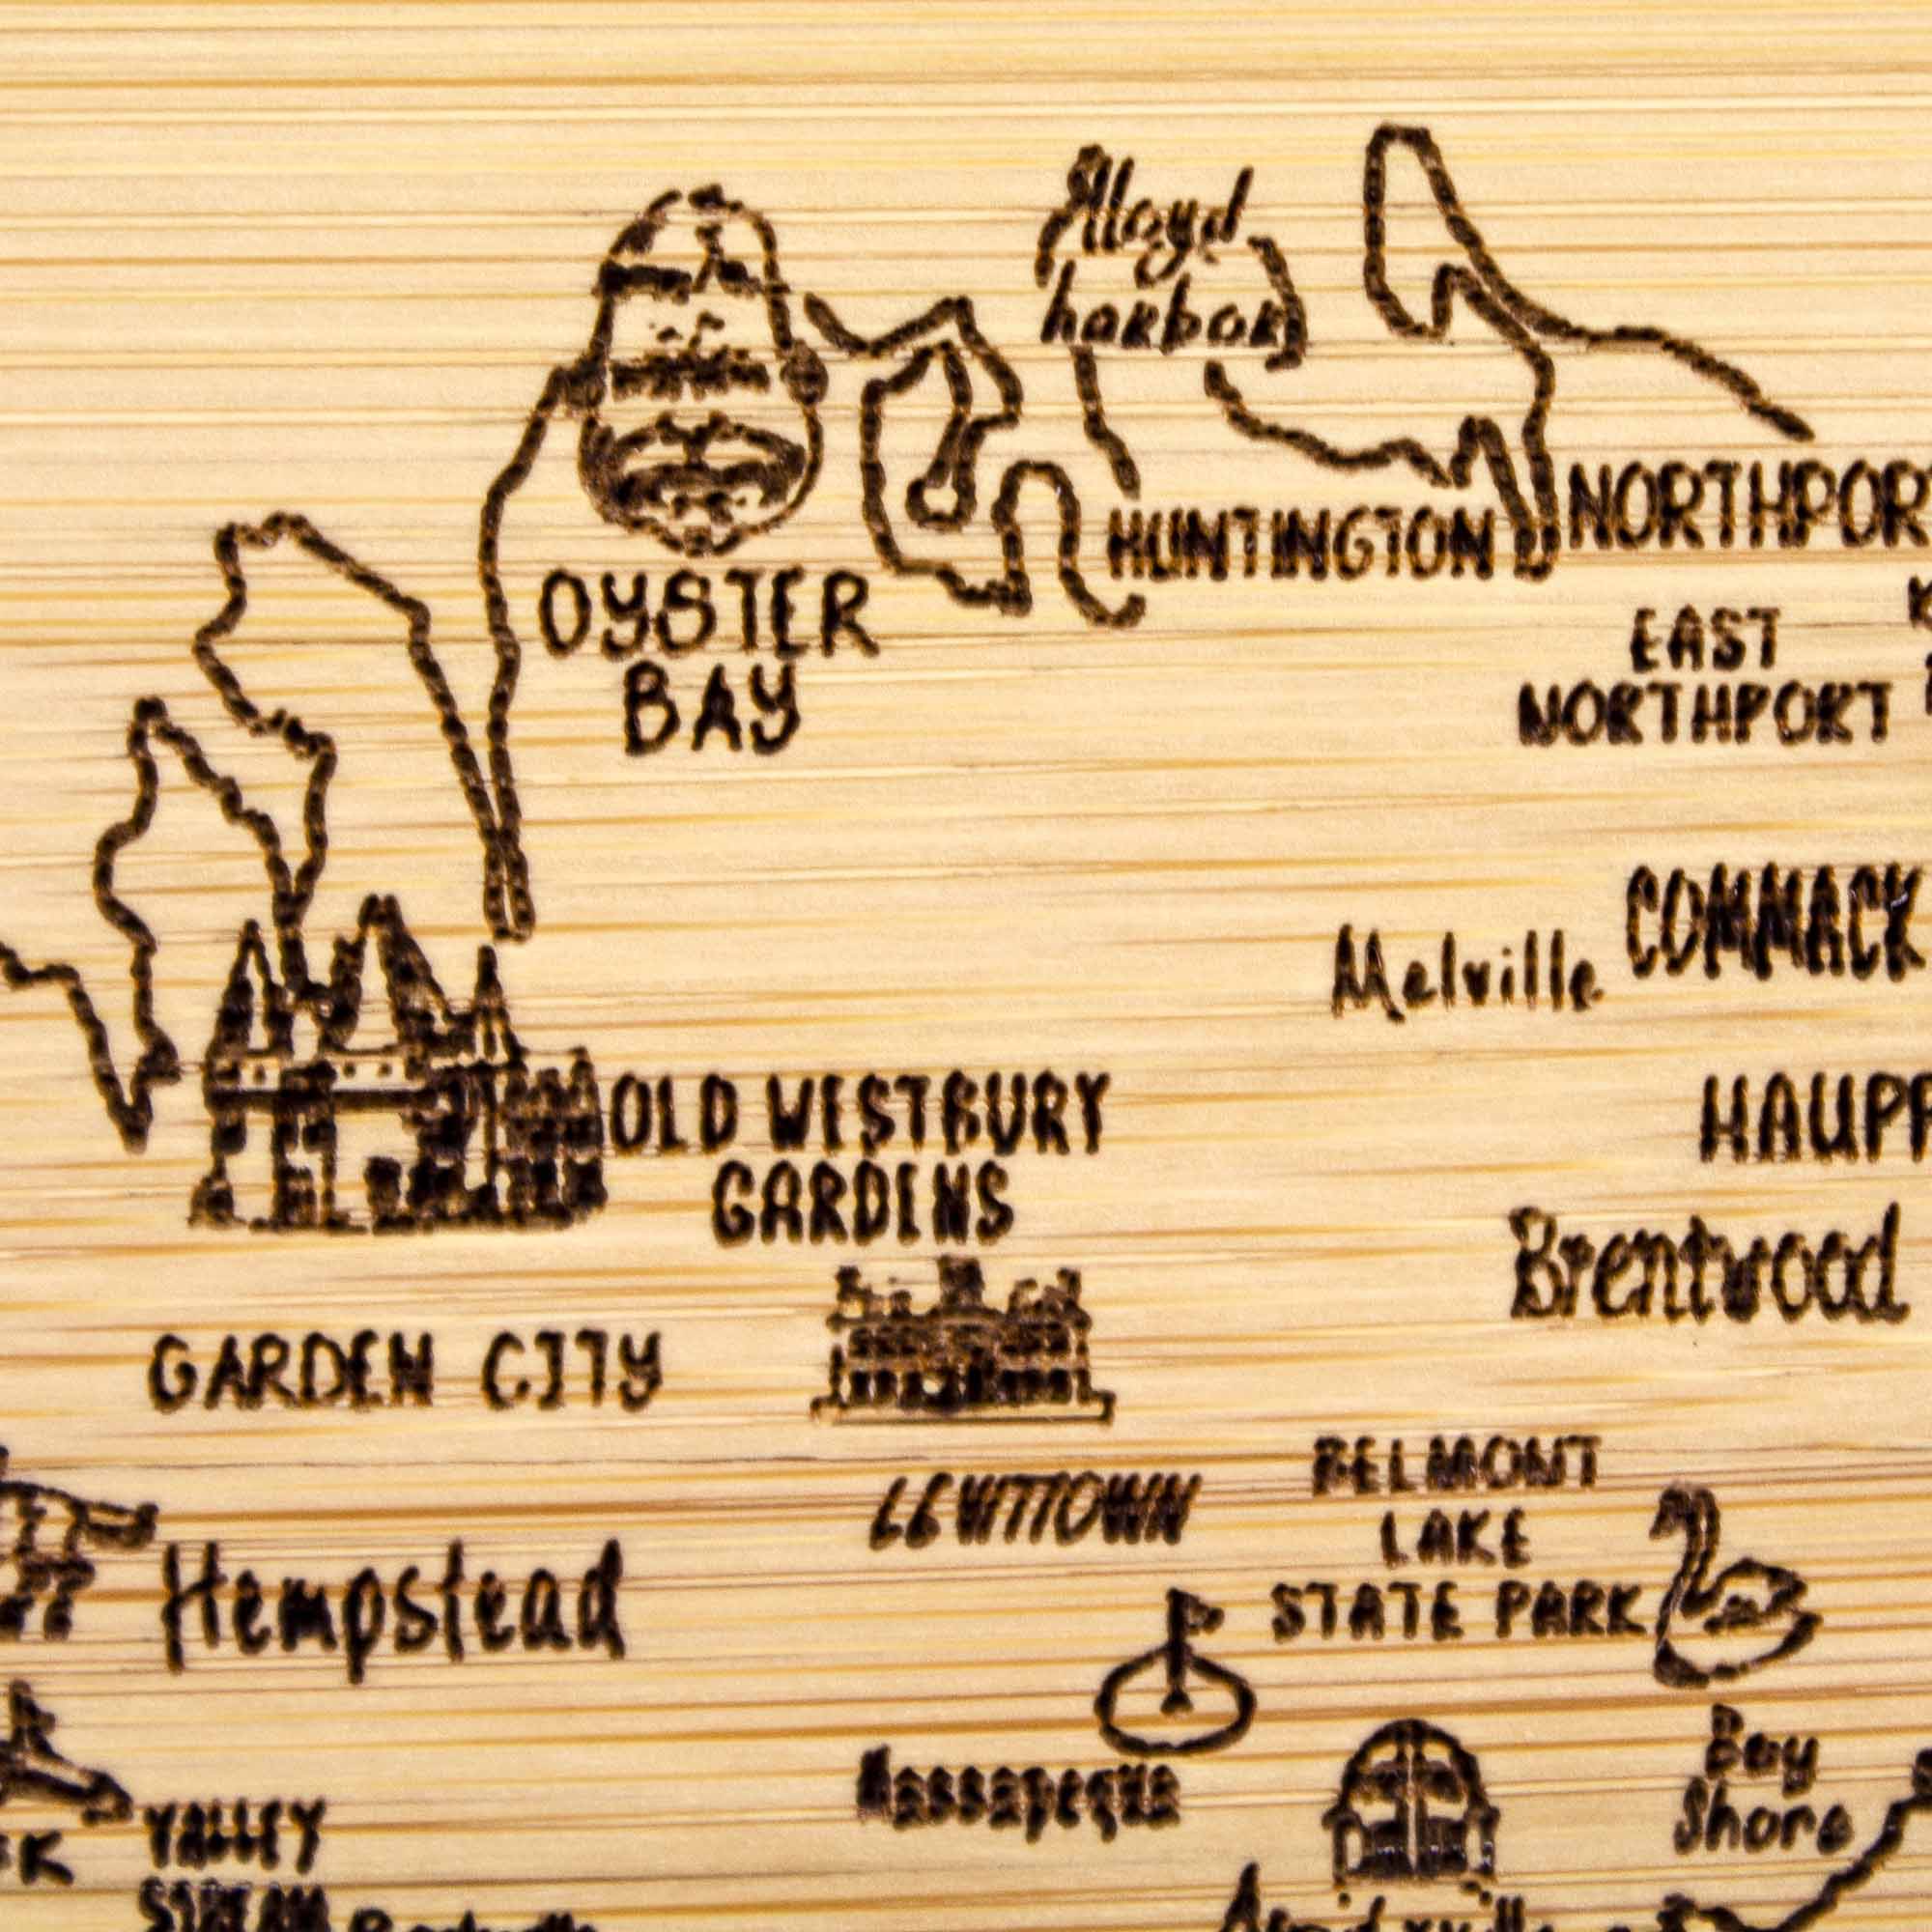 Lloyd
harbor
HUNTINGTON
NORTHPOR
OYSTER
BAY
EAST
NORTHPORT
COMMACK
Melville
OLD WESTBURY
GARDENS
HAUPP
Brentwood
GARDEN CITY
LEVITTOWN
BELMONT
LAKE
STATE PARK
Hempstead
Massapequa
Bay
Shore
VALLEY
STREAM
K